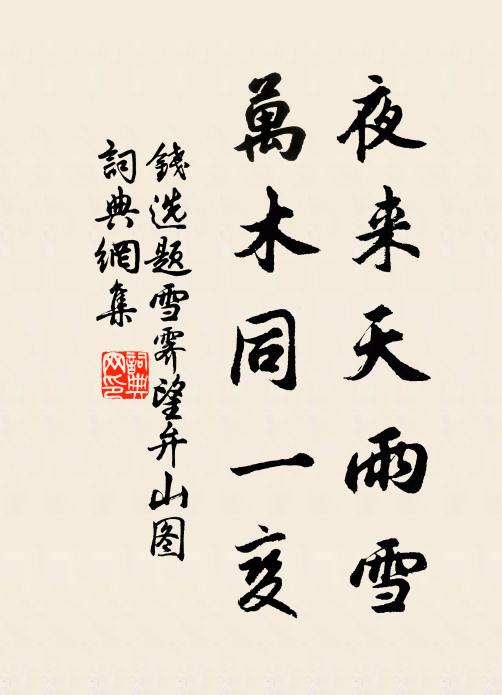 夜来天雨雪
萬木同一变
錢选题雪霁望弁山图
詞典網集
詞典网印